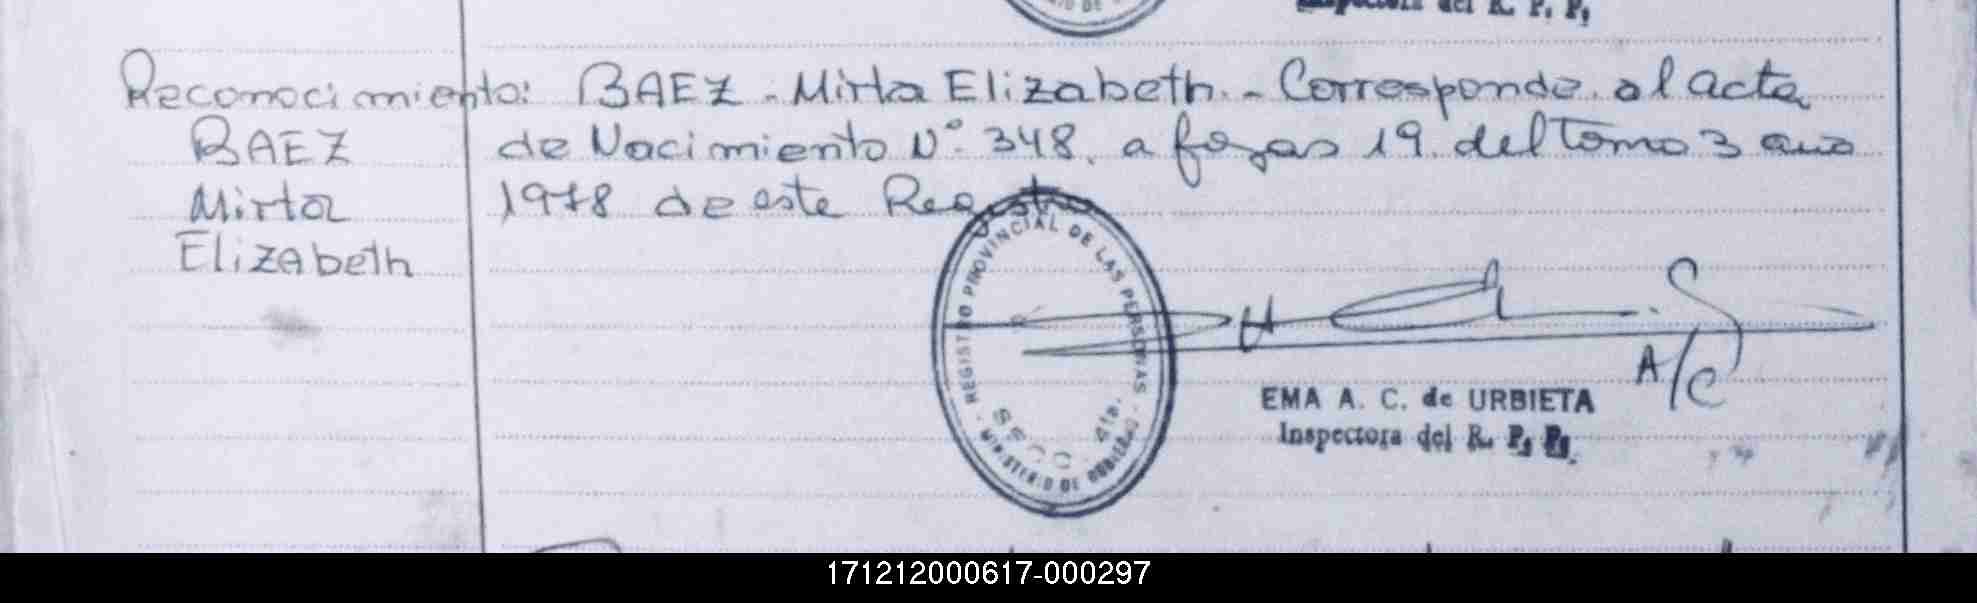 Inspectora del R. P. P.
Reconocimiento: BAEZ - Mirta Elizabeth. - Corresponde al acta
BAEZ
de Nacimiento N° 348, a fojas 19 del Tomo 3 año
Mirta
1978 de este Registro
Elizabeth
REGISTRO PROVINCIAL DE LAS PERSONAS
SECC. 4ta.
MINISTERIO DE GOBIERNO
A/C
EMA A. C. de URBIETA
Inspectora del R. P. P.
171212000617-000297